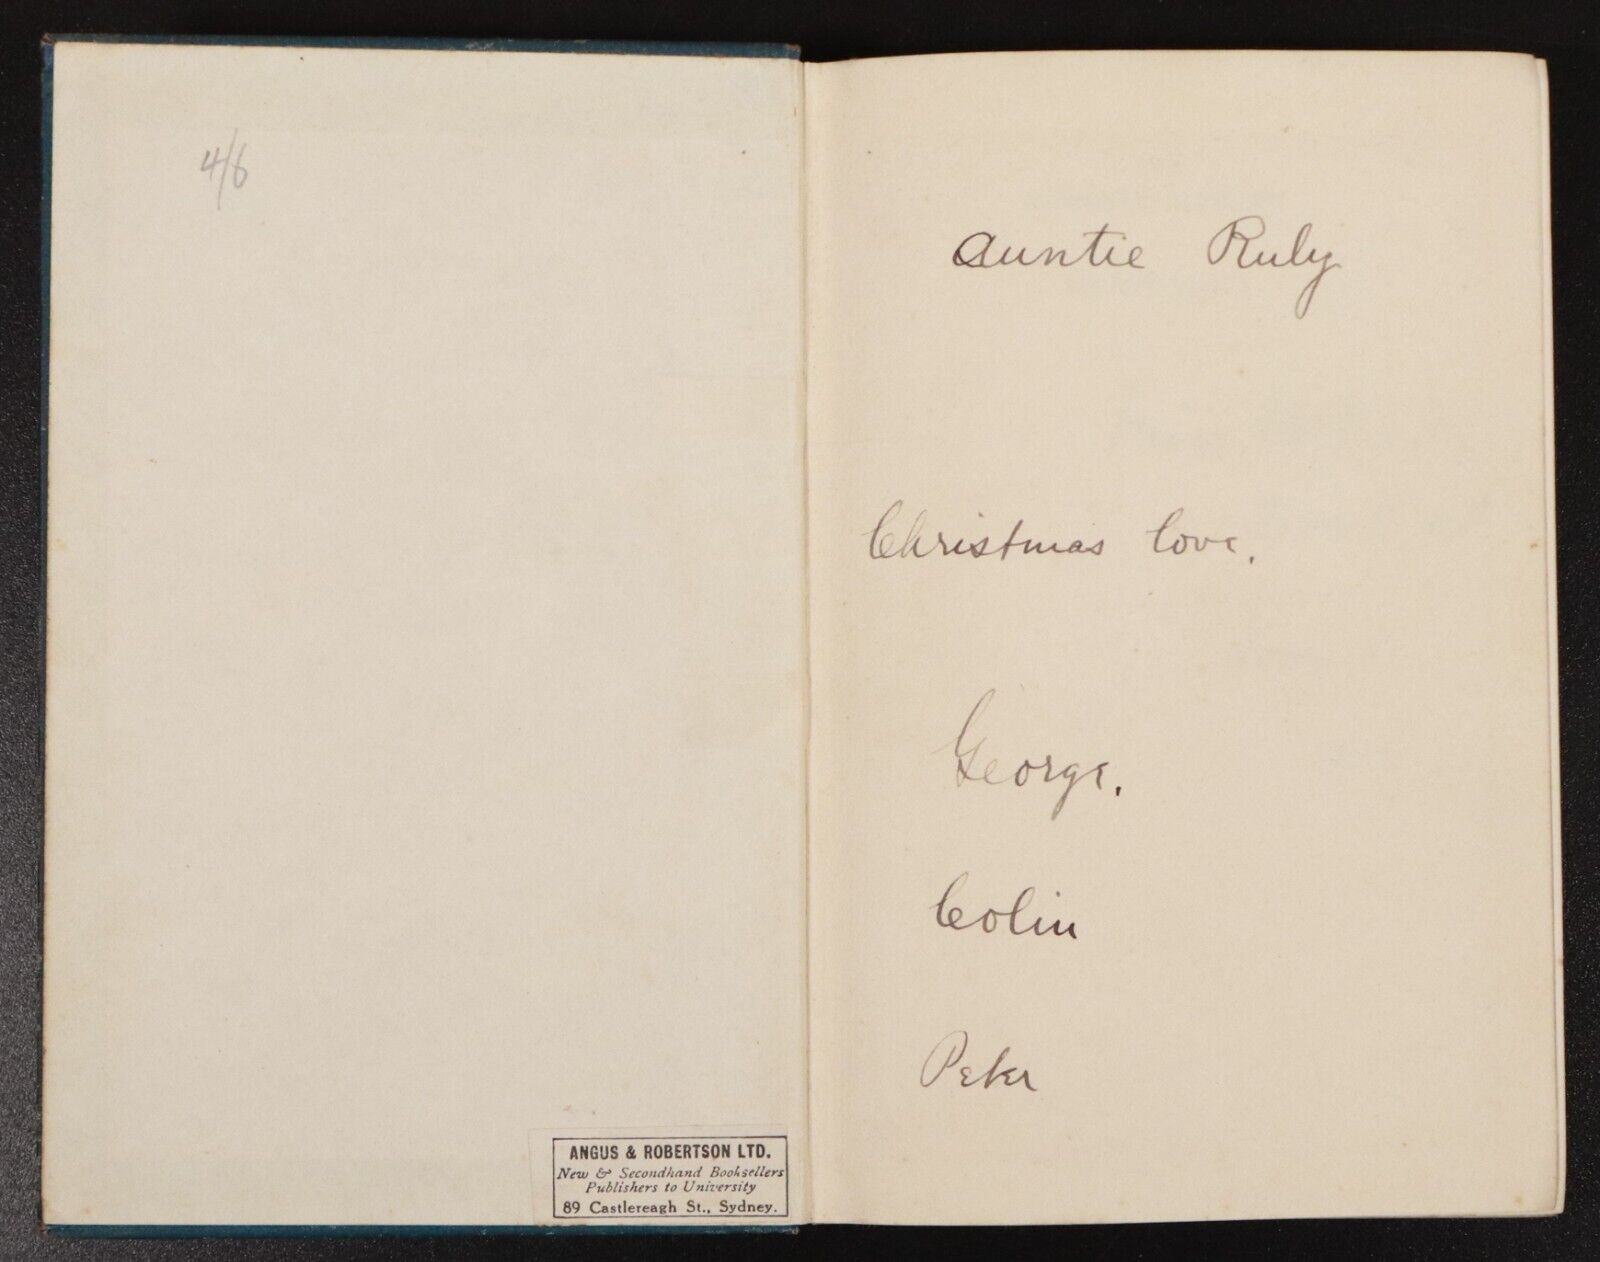 4/6
Auntie Ruby
Christmas love.
George.
Colin
Peter
ANGUS & ROBERTSON LTD.
New & Secondhand Booksellers
Publishers to University
89 Castlereagh St., Sydney.